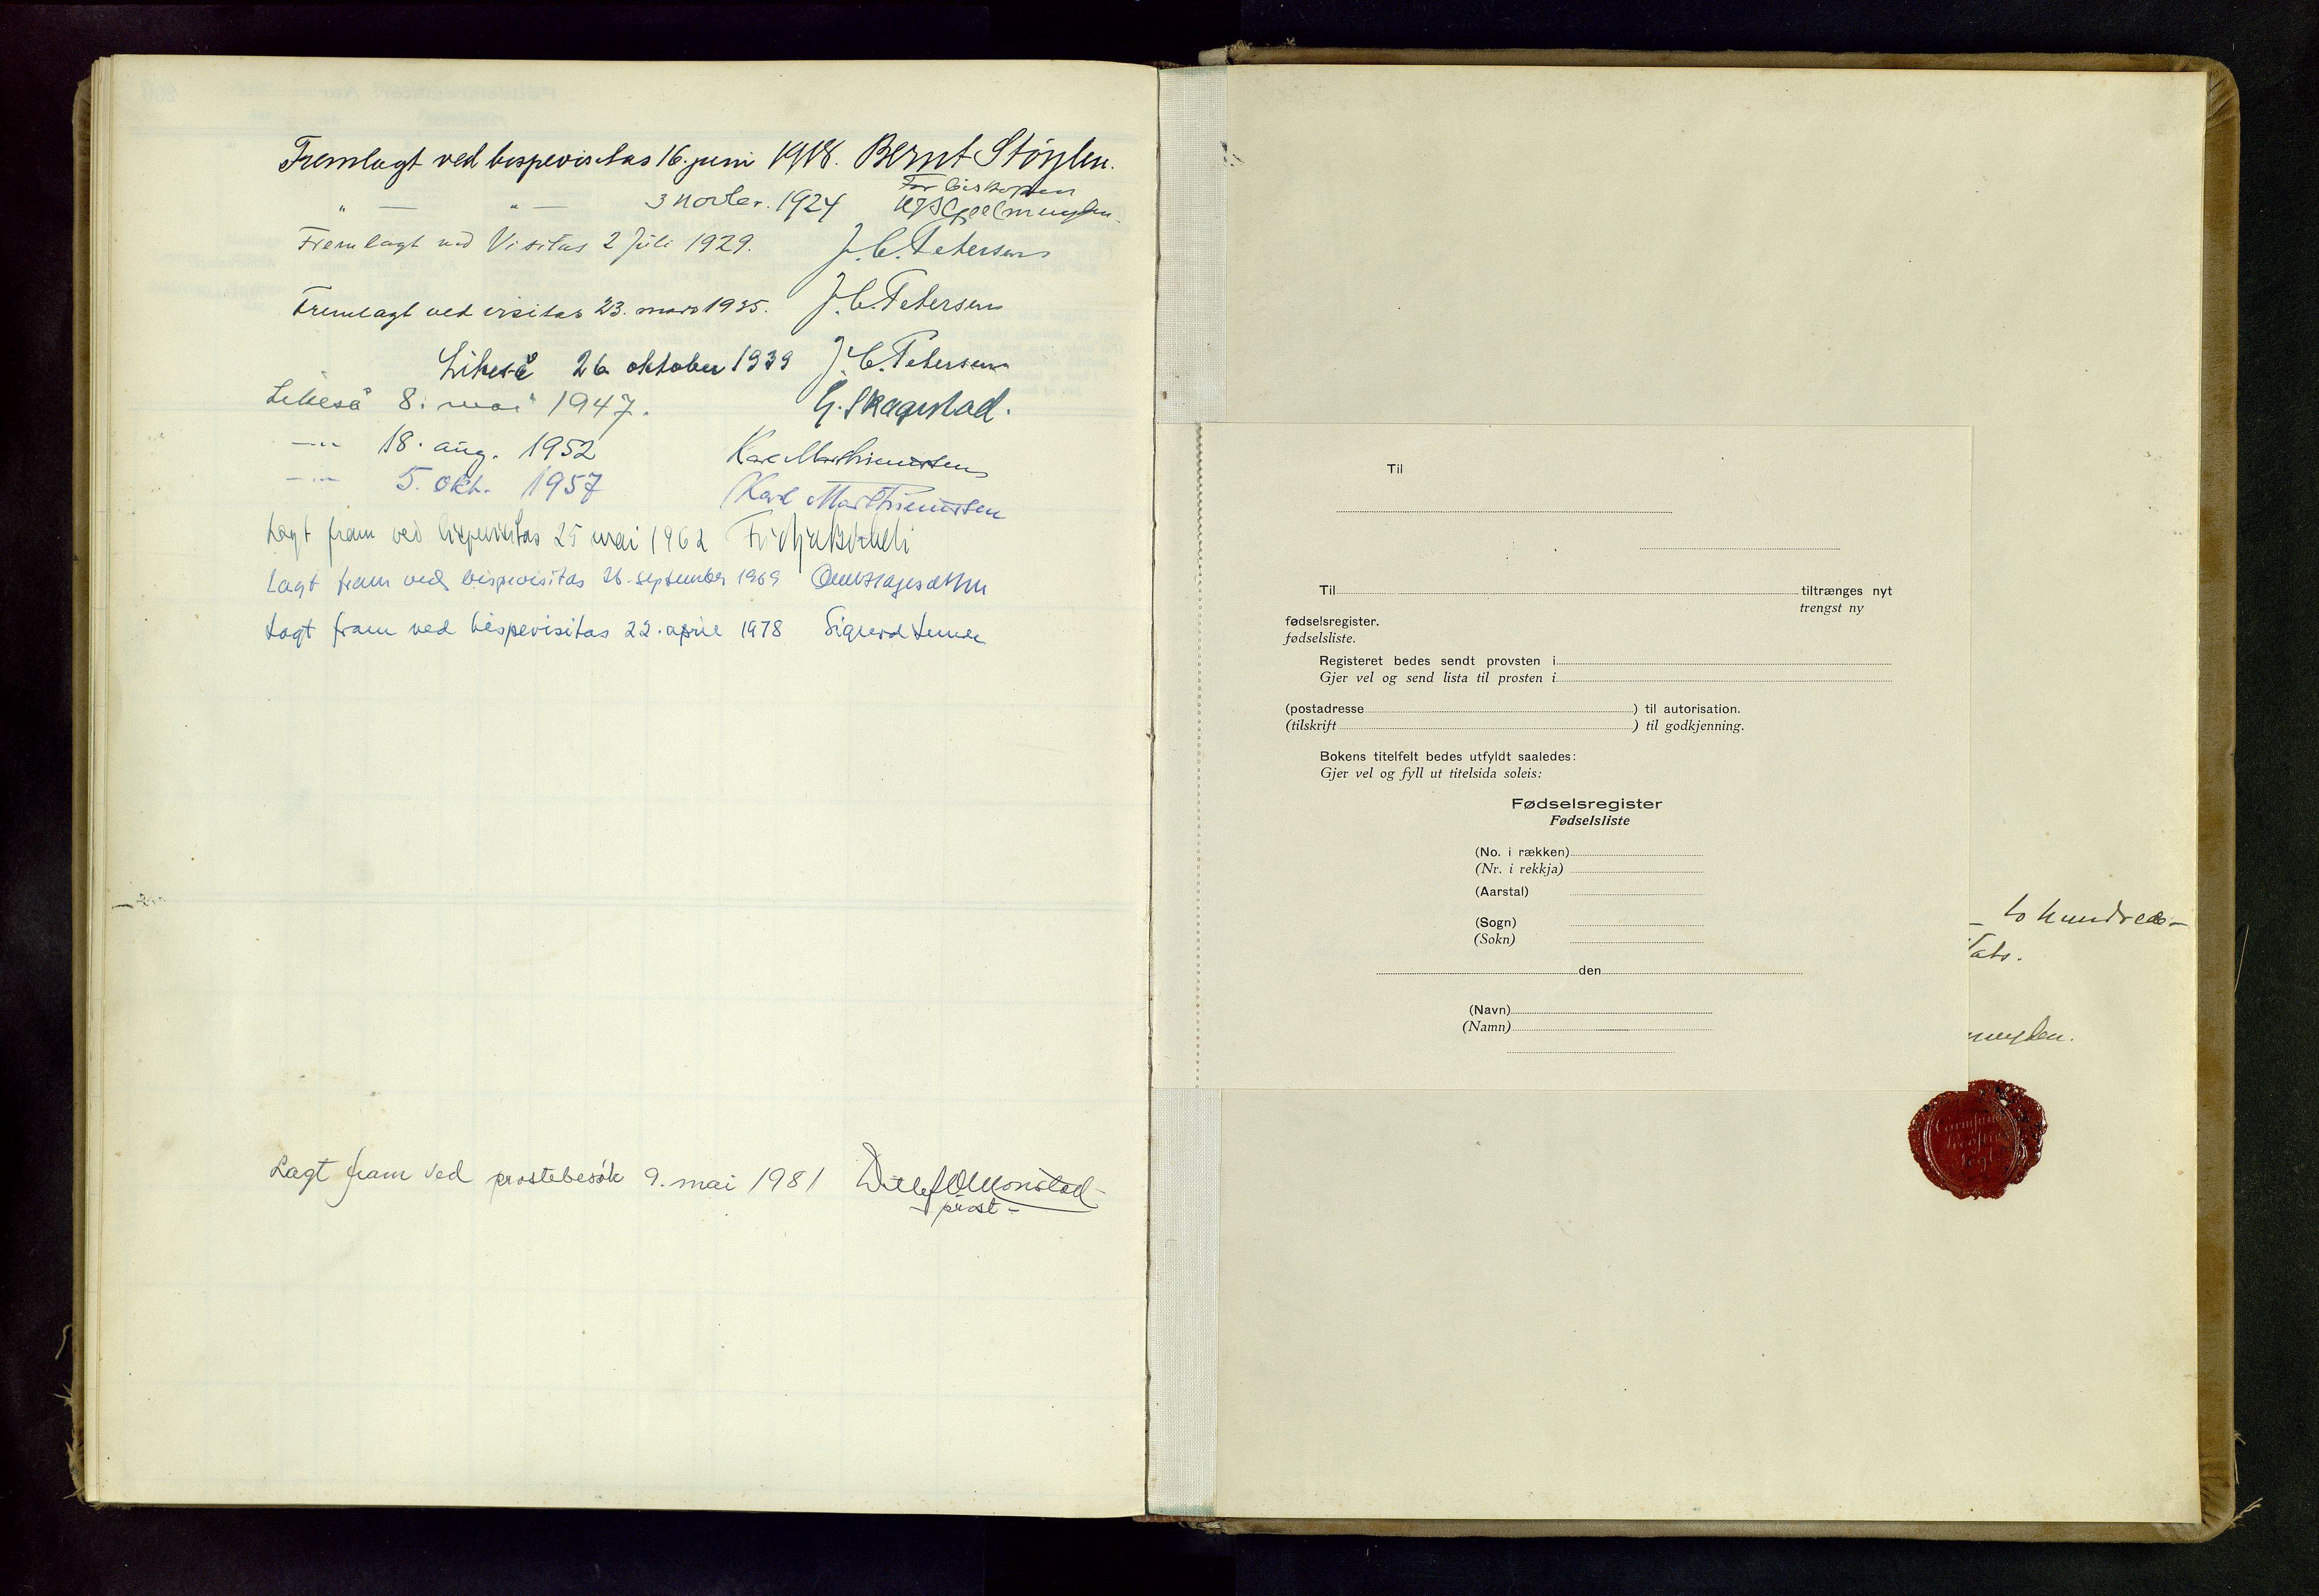 Fremlagt ved bispevisitas 16. juni 1918. Bernt Støylen.
" — " — 3 novbr. 1924 For biskopen
Fremlagt ved Visitas 2 Juli 1929. J. C. Petersen
Fremlagt ved visitas 23. mars 1935. J. C. Petersen
Likeså 26 oktober 1939 J. C. Petersen
Likeså 8. mai 1947. G. Skagestad.
—"— 18. aug. 1952 Karl Marthinussen
—"— 5. okt. 1957 Karl Marthinussen
Lagt fram ved bispevisitas 25 mai 1962
Lagt fram ved bispevisitas 26. september 1969
Lagt fram ved bispevisitas 22. april 1978 Sigurd Lunde
Lagt fram ved prostebesøk 9. mai 1981 Ditlef Monstad
prost-
Til
Til tiltrænges nyt
trengst ny
fødselsregister.
fødselsliste.
Registeret bedes sendt provsten i
Gjer vel og send lista til prosten i
(postadresse ) til autorisation.
(tilskrift ) til godkjenning.
Bokens titelfelt bedes utfyldt saaledes:
Gjer vel og fyll ut titelsida soleis:
Fødselsregister
Fødselsliste
(No. i rækken)
(Nr. i rekkja)
(Aarstal)
(Sogn)
(Sokn)
den
(Navn)
(Namn)
to hundrede-